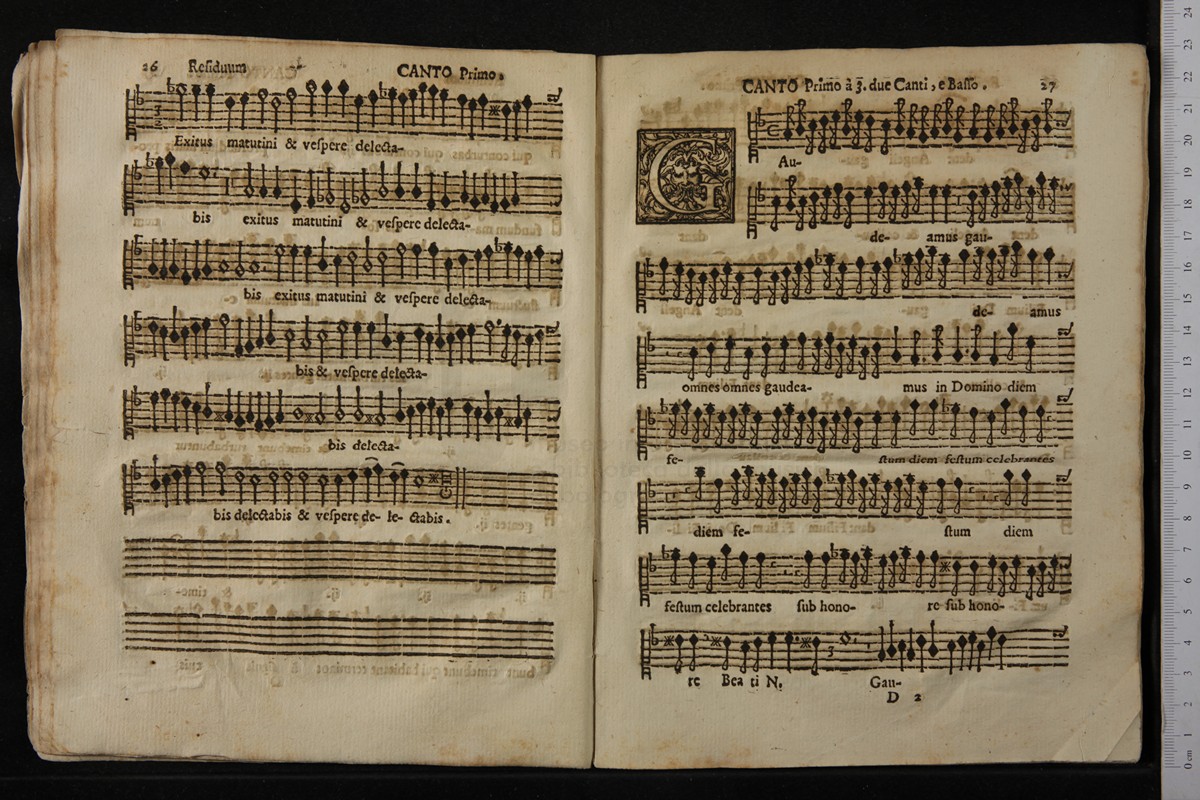 26 Residuum CANTO Primo.
Exitus matutini & vespere delecta-
bis exitus matutini & vespere delecta-
bis exitus matutini & vespere delecta-
bis & vespere delecta-
bis delecta-
bis delectabis & vespere de- le- ctabis.
CANTO Primo à 3. due Canti, e Basso. 27
G
Au-
de- amus gau-
de- amus
omnes omnes gaudea- mus in Domino diem
fe- stum diem festum celebrantes
diem fe- stum diem
festum celebrantes sub hono- re sub hono-
re Bea ti N. Gau-
D 2